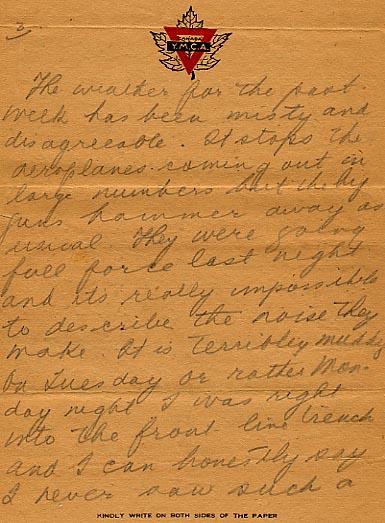 3
CANADIAN
Y.M.C.A.
The weather for the past
week has been misty and
disagreeable. It stops the
aeroplanes coming out in
large numbers but the big
guns hammer away as
usual. They were going
full force last night
and its really impossible
to describe the noise they
make. It is terribley muddy
On Tuesday or rather Mon-
day night I was right
into the front line trench
and I can honestly say
I never saw such a
KINDLY WRITE ON BOTH SIDES OF THE PAPER